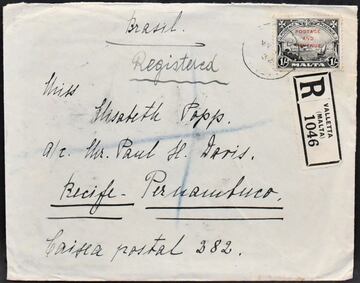 Brasil.
Registered
POSTAGE
AND
REVENUE
1/- MALTA 1/-
R
VALLETTA
(MALTA)
1046
Miss
Elisabeth Popp.
a/c. Mr. Paul H. Davis.
Recife - Pernambuco.
Caisea postal 382.